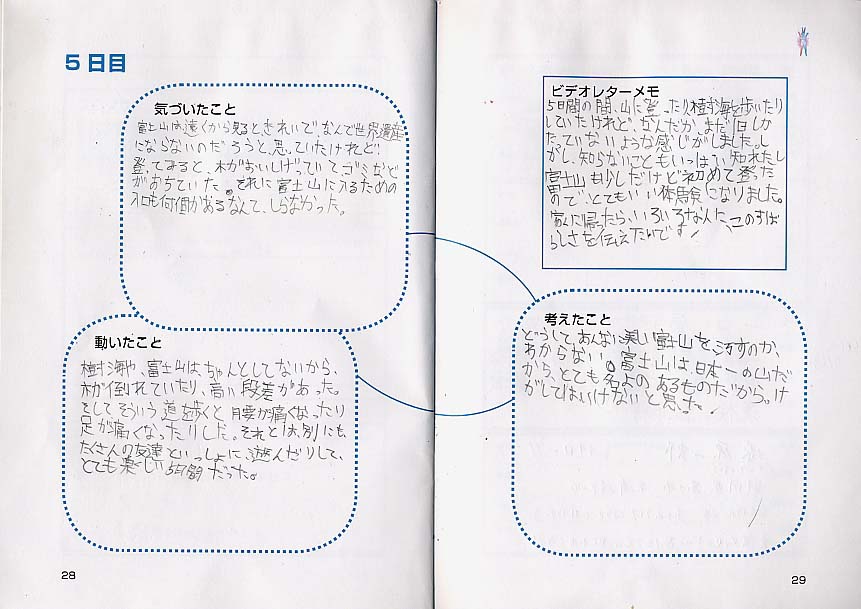 5日目
気づいたこと
富士山は、遠くから見ると、きれいで、なんで世界遺産
にならないのだろうと、思っていたけれど
登ってみると、木がおいしげっていて、ゴミなど
がおちていた。それに富士山に入るための
入口も何個かあるなんて、しらなかった。
動いたこと
樹海や、富士山はちゃんとしてないから、
木が倒れていたり、高い段差があった。
そしてそういう道を歩くと腰が痛くなったり
足が痛くなったりした。それとは、別にも、
たくさんの友達といっしょに遊んだりして、
とても楽しい5日間だった。
28
ビデオレターメモ
5日間の間、山に登ったり樹海を歩いたり
していたけれど、なんだか、まだ1日しか
たっていないような感じがしました。し
かし、知らないこともいっぱい知れたし
富士山も少しだけど初めて登った
ので、とてもいい体験になりました。
家に帰ったら、いろいろな人に、このすば
らしさを伝えたいです!
考えたこと
どうして、あんな美しい富士山を、汚すのか、
わからない。富士山は、日本一の山だ
から、とても名よのあるものだから。け
がしてはいけないと思った!
29